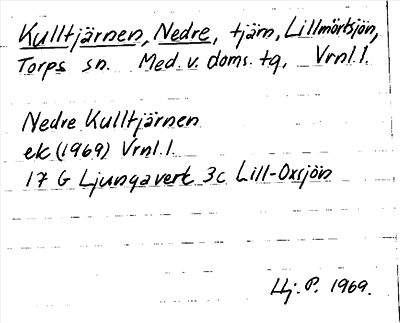 Kulltjärnen, Nedre, tjärn, Lillmörtsjön,
Torps sn. Med. v. doms. tg, Vrnl.l.
Nedre Kulltjärnen
ek (1969) Vrnl.l.
17 G Ljungaverk 3c Lill-Oxsjön
Hj. P. 1969.